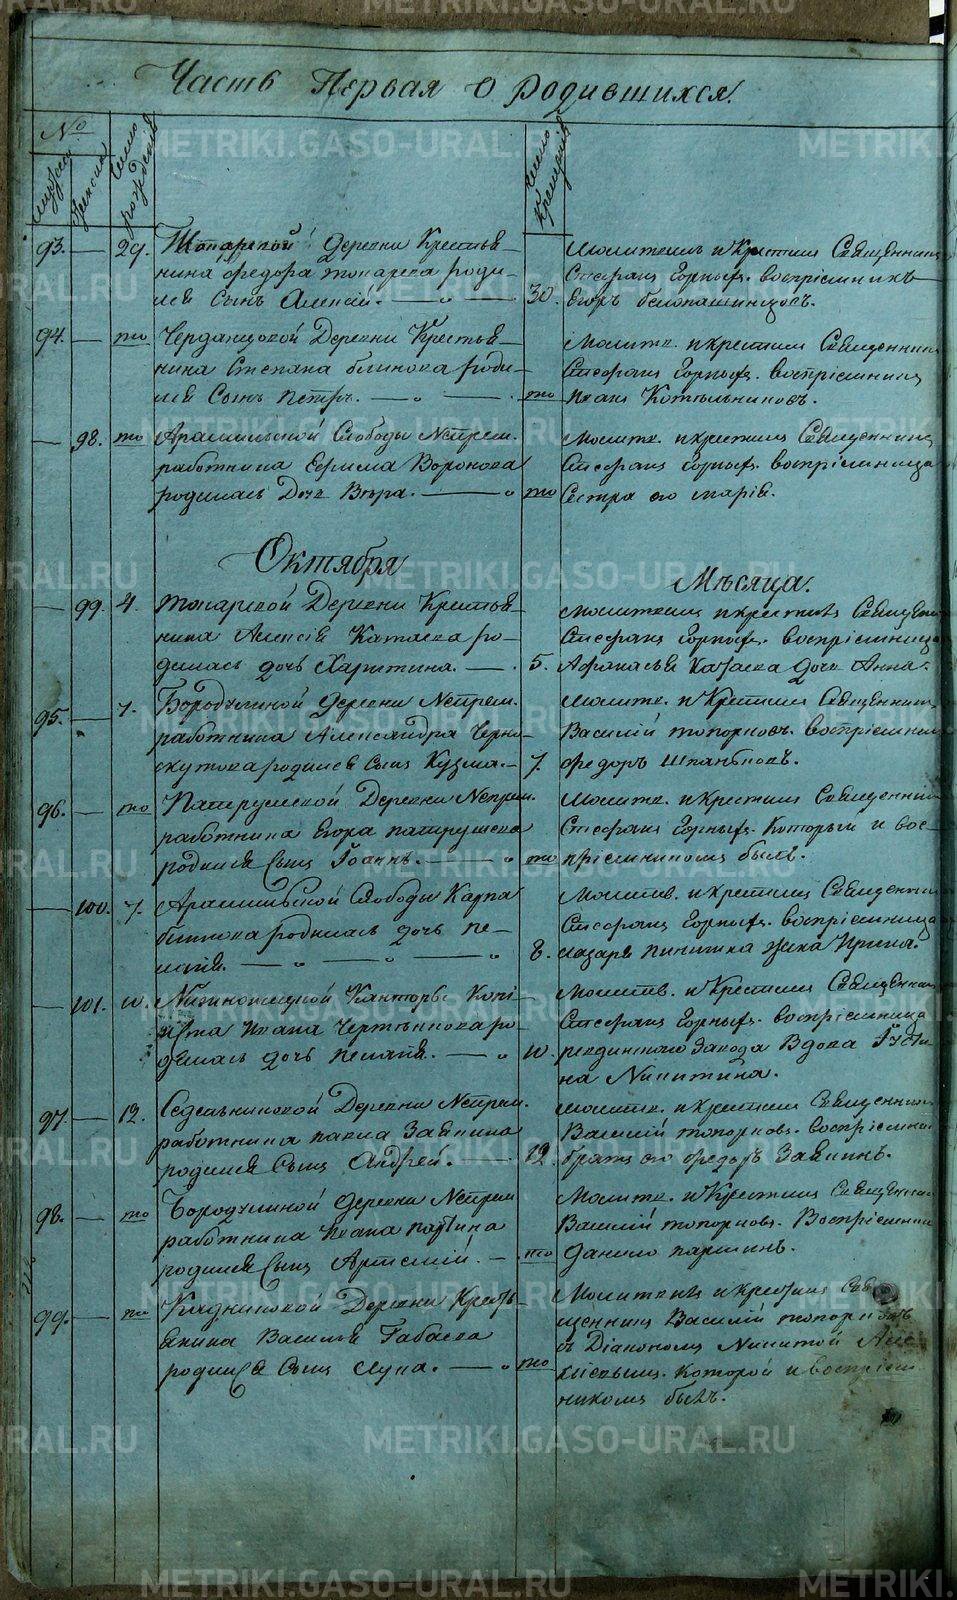 Часть Первая о родившихся.
№
мужска
женска
число рождения
число крещения
93. — 29. Топарской Деревни Крестья-
нина федора топарева роди-
лся Сынъ Алексей. 30.
Молитвилъ и Крестилъ Священникъ
Стефанъ Горныхъ. воспріемникъ
Егоръ белопашинцовъ.
94. — то Чердынцовой Деревни Крестья-
нина Степана блинова роди-
лся Сынъ петръ. то
Молитв. и крестилъ Священникъ
Стефанъ Горныхъ. воспріемникъ
Иванъ Котельниковъ.
— 98. то Арамильской Слободы Непрем.
работника Ефима Воронова
родилась Дочь Вѣра. то
Молитв. и крестилъ Священникъ
Стефанъ Горныхъ. воспріемница
Сестра его марія.
Октября Мѣсяца.
— 99. 4. топарской Деревни Крестья-
нина Алексѣя Катаева ро-
дилась дочь Харитина. 5.
Молитвилъ и крестилъ Священникъ
Стефанъ Горныхъ. воспріемница
Афонасья Катаева дочь Анна.
95. — 7. Бородулиной деревни Непрем.
работника Александра Черно-
скутова родился Сынъ Кузма. 7.
Молитв. и Крестилъ Священникъ
Василій топорковъ. воспріемникъ
федоръ
96. — то Патрушевой Деревни Непрем.
работника Егора патрушева
родился Сынъ Іоаннъ. то
Молитв. и Крестилъ Священникъ
Стефанъ Горныхъ. Который и вос-
пріемникомъ былъ.
— 100. 7. Арамильской Слободы Карпа
блинова родилась дочь пе-
лагія. 8.
Молитв. и крестилъ Священникъ
Стефанъ Горныхъ. воспріемница
лазаря никитина жена Ирина.
— 101. 10. Канторы Копі-
иста Ивана Чертенкова ро-
дилась дочь пелагія. 10.
Молитв. и Крестилъ Священникъ
Стефанъ Горныхъ. воспріемница
ревдинского Завода Вдова Іусти-
на Никитина.
97. — 12. Седельниковой Деревни Непрем.
работника павла Завьялова
родился Сынъ Андрей. 12.
Молитв. и крестилъ Священникъ
Василій топорковъ. воспріемник
братъ его федоръ
98. — то Бородулиной Деревни Непрем.
работника Ивана паршина
родился Сынъ Артемій. то
Молитв. и Крестилъ Священник
Василій топорковъ. Воспріемник
данило паршинъ.
99. — то Кадниковой Деревни Кресть-
янина Василья Габаева
родился Сынъ Лука. то
Молитвилъ и крестилъ Свя-
щенникъ Василій топорковъ
съ Діакономъ Никитой Але-
которой и воспріем-
никомъ былъ.
METRIKI.GASO-URAL.RU